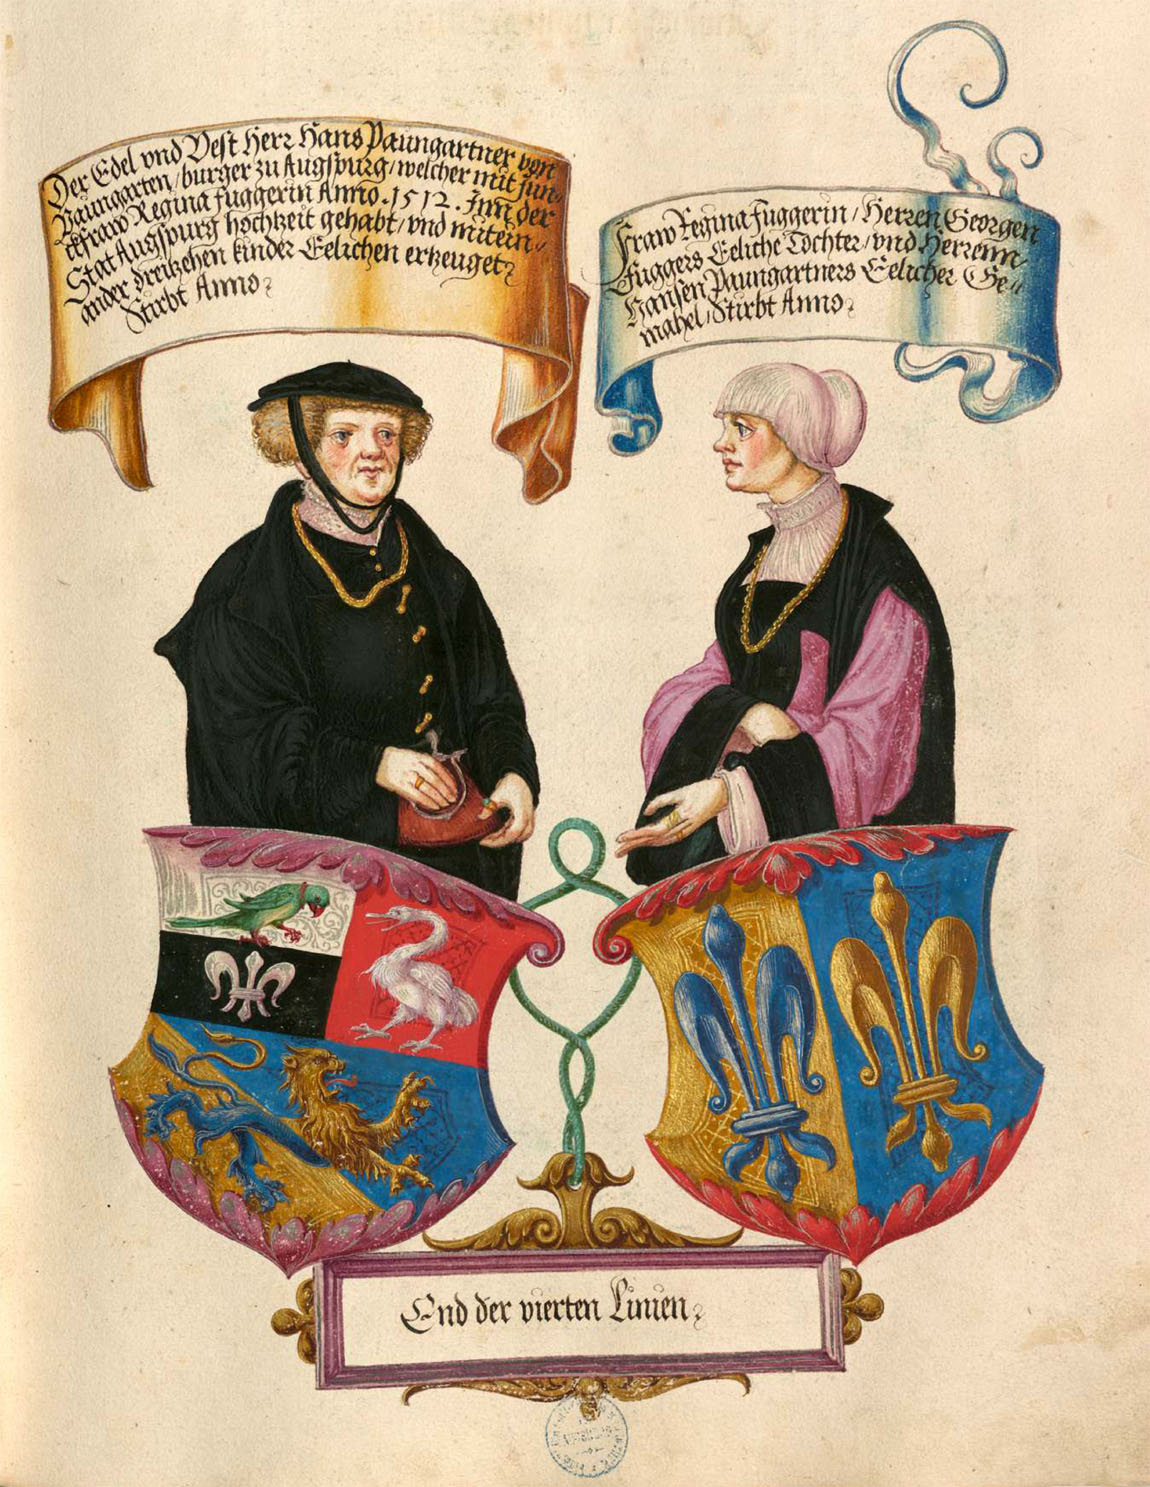 Der Edel vnd Vest Herr Hans Paungartner von
Paungarten/burger zu Augspurg/welcher mit Jun-
ckfraw Regina Fuggerin Anno.1512. Jnn der
Stat Augspurg hochzeit gehabt/vnd mitein//
ander dreitzehen kinder Eelichen ertzeuget
Stirbt Anno
Fraw Regina Fuggerin/Herren Georgen
Fuggers Eeliche Tochter/vnd Herrenn
Hansen Paungartners Eelicher Ge//
mahel/Stirbt Anno
End der vierten Linien